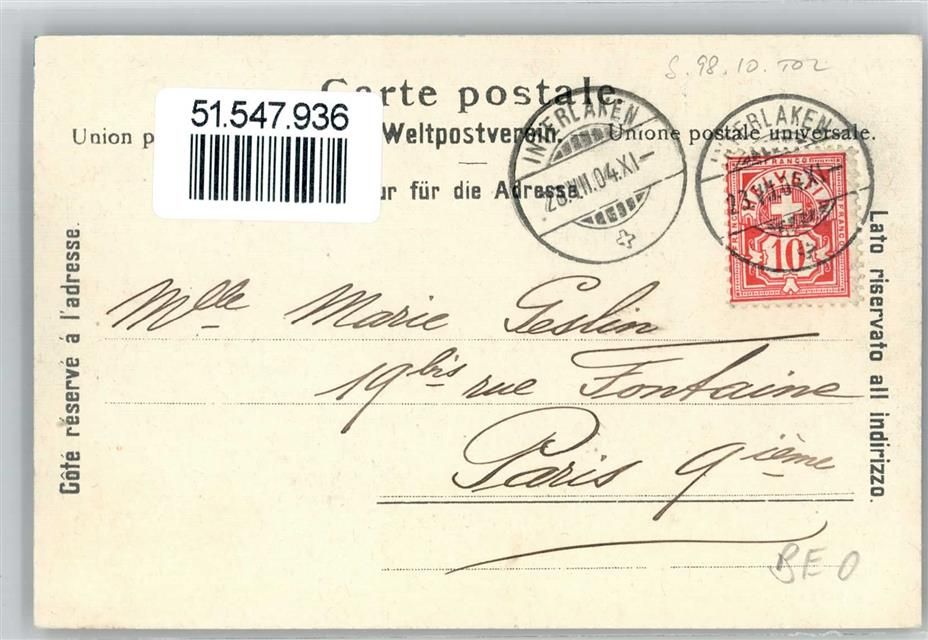 S. 98. 10. TOZ
Carte postale.
51.547.936
Union p Weltpostverein. Unione postale universale.
ur für die Adresse
INTERLAKEN
28.VII.04.XI
INTERLAKEN
FRANCO
HELVETIA
FRANCO
FRANCO
10
Côté réservé à l'adresse.
Lato riservato all indirizzo.
Mlle Marie Geslin
19bis rue Fontaine
Paris 9ième
BE O